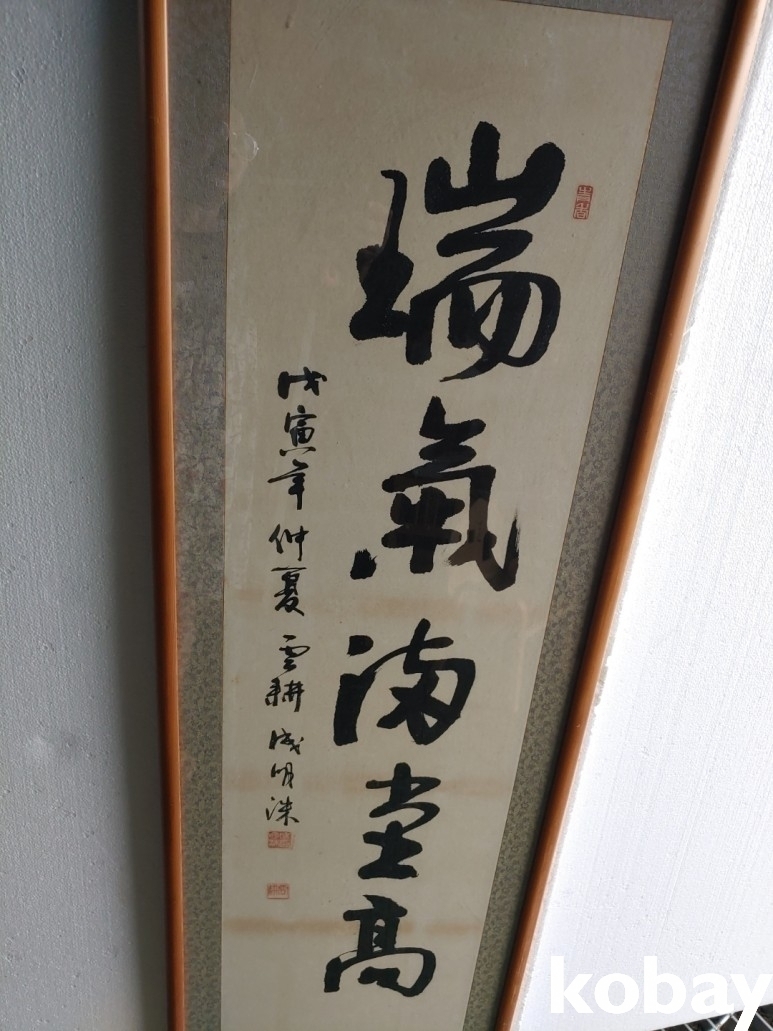 瑞氣滿堂高
戊寅年仲夏 雲耕 成明洙
kobay